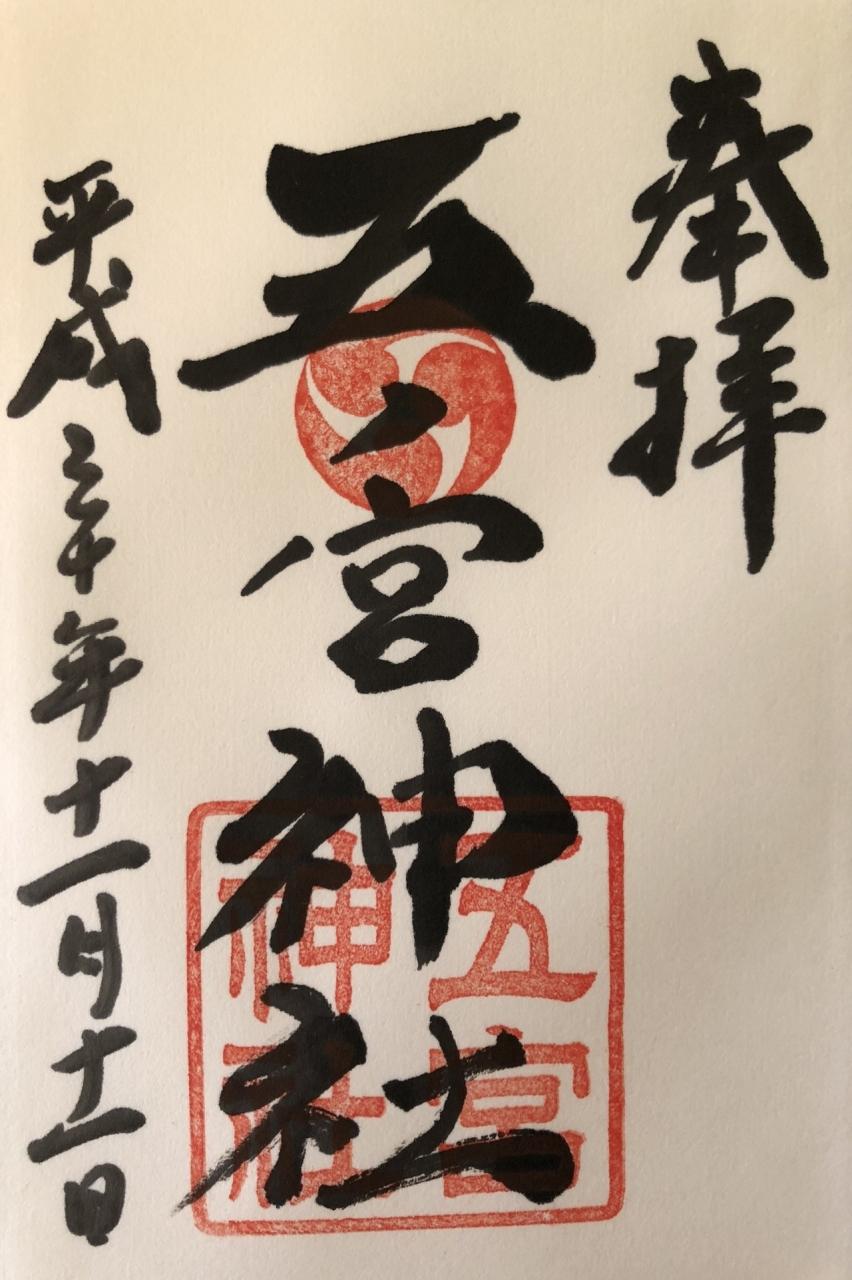 奉拝
五宮神社
五宮神社
平成三十年十一月十一日